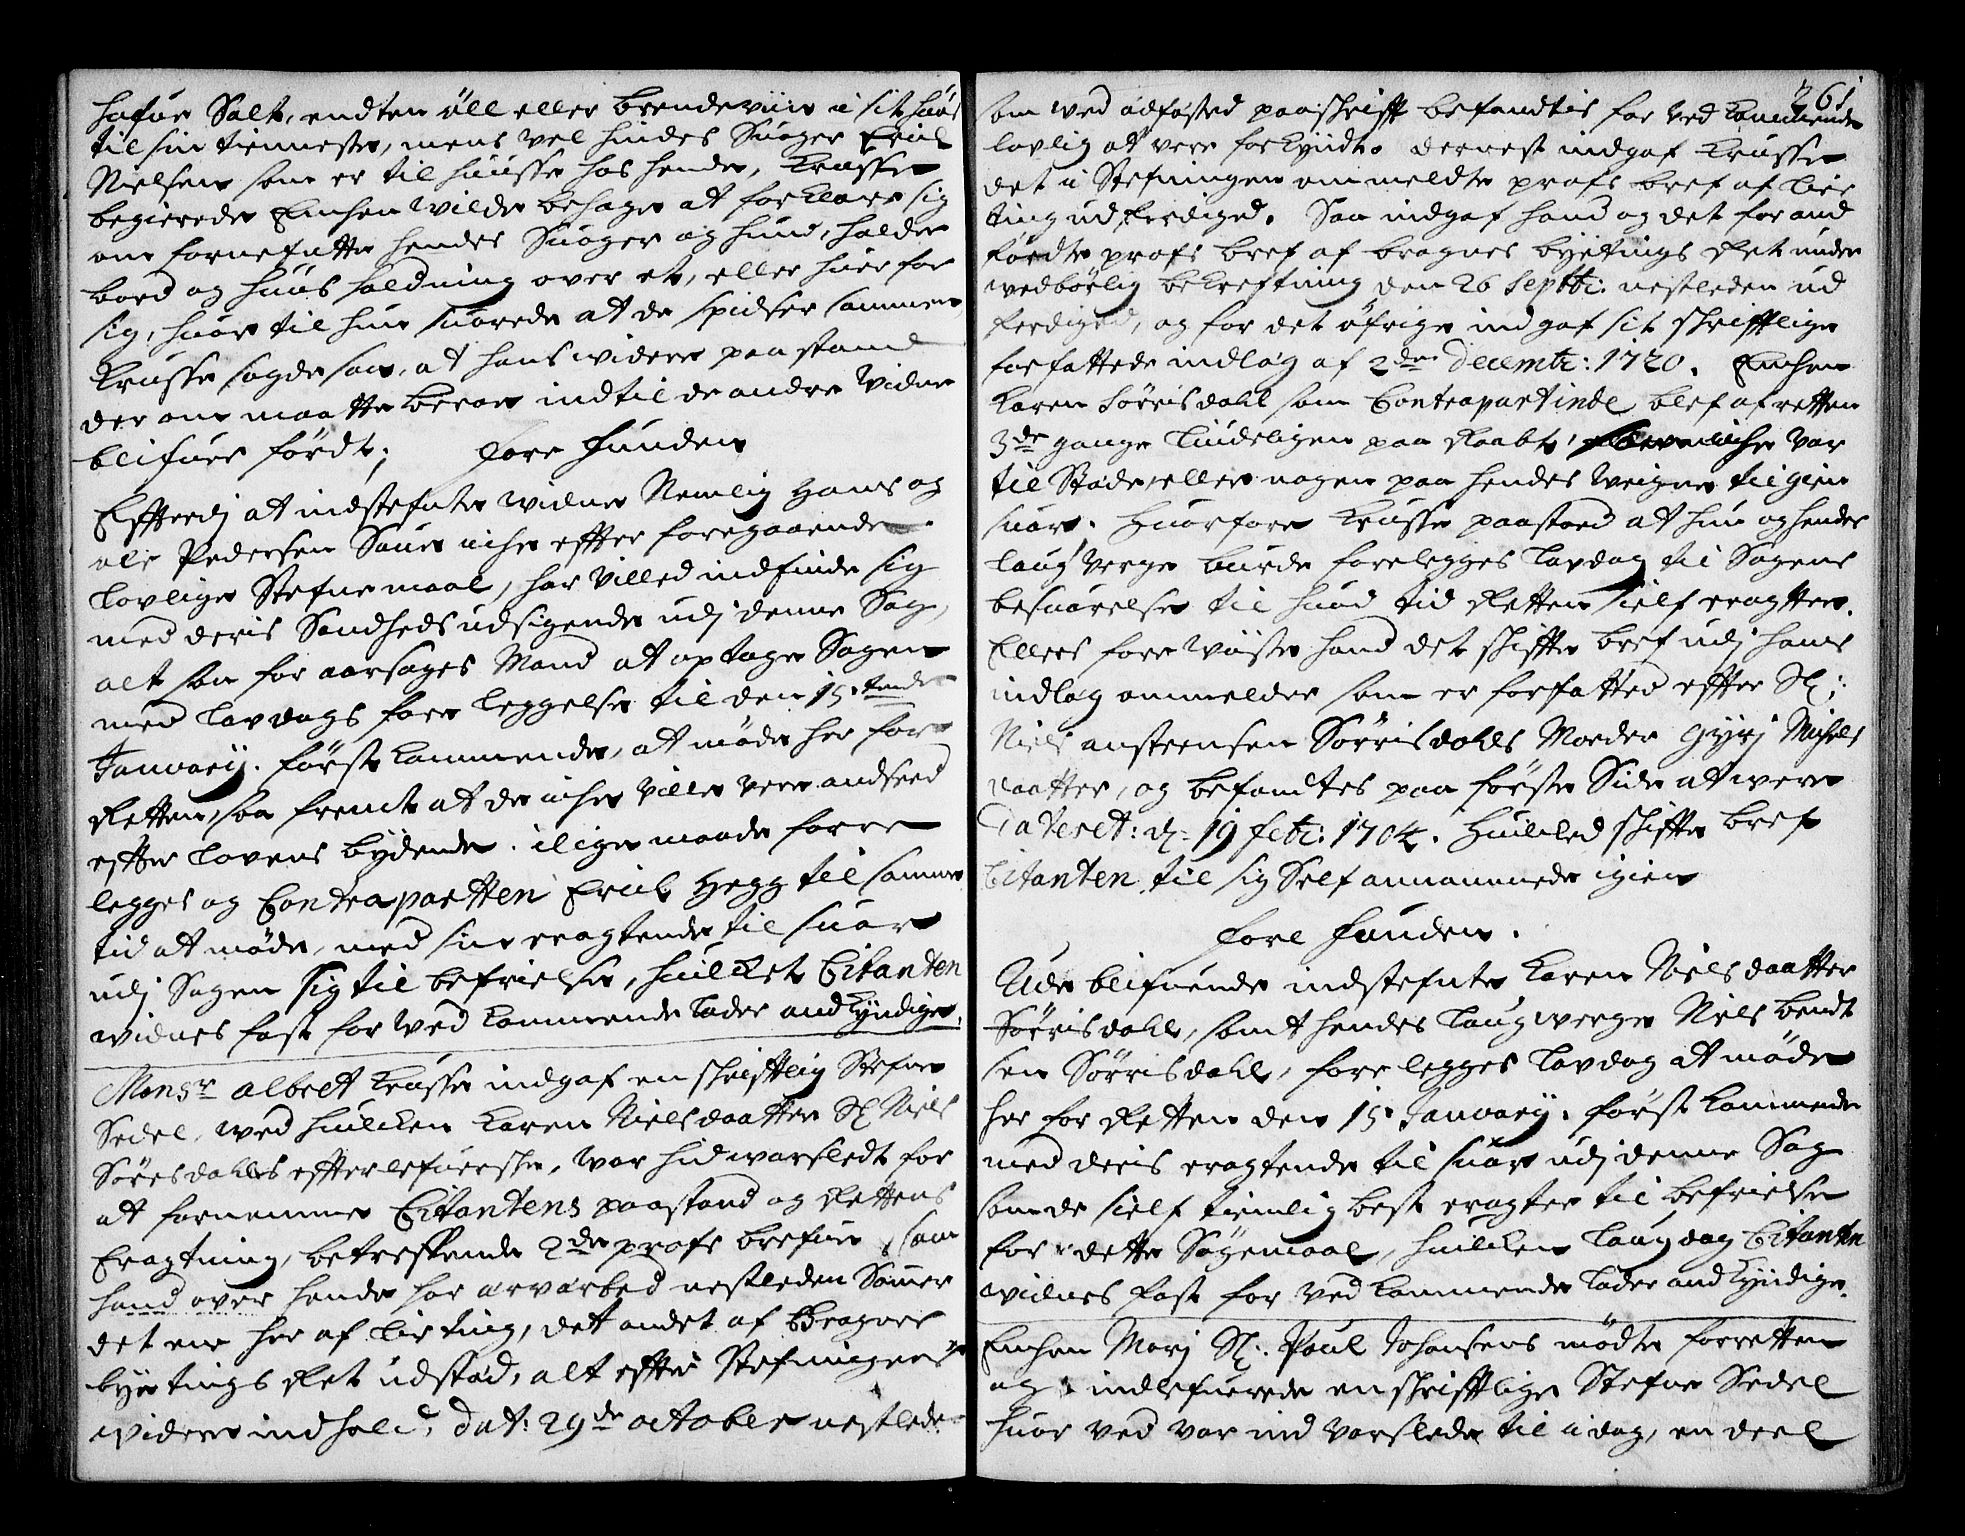 hafue Salt, endten öll eller brendeviin i sit huus
til sin tienneste, mens vel hindes Suoger Erich
Nielsen som er til huusse hos hende, Krusse
begierede Enchen wilde behage at forklare sig
om fornefntte hendes Suoger og hun, holder
bord og huus holdning over et, eller huer for
sig, huor til hun suarede at de spidser sammen
Krusse sagde saa, at hans widere paastand
der om maatte beroe indtil de andre Vidner
blifuer fördt; fore funden
Efterdj at indstefnte widner Nemlig Hans og
ole Pedersen Saue iche effter foregaaende
lovlige Stefnemaal, har villed indfinde sig
med deris Sandheds udsigende udj denne Sag,
alt saa for aarsages Mand at optage Sagen
med lavdags fore leggelse til den 15tende
Januarij. först kommende, at möde her for
Retten, saa fremt at de iche ville vere andseed
effter lovens bydende. i lige maade forre
legges og Contrapartten Erich Hegg til samme
tid at möde, med sin eragtende til suar
udj Sagen sig til befrielse, huilcket Citanten
widnes fast for ved kommende lader andkyndige,
Monsr albret Krusse indgaf en schrifttlig Stefne
Sedel, wed huilcken Karen Nielsdaatter Sl Niels
Sörisdahls effterlefuersche, war hid warsledt for
at fornemme Citantens paastand og Rettens
Eragtning, betreffende 2de profs brefue, som
hand over hende har ervarbed nestleden Somer
det ene her af Lier ting, det andet af Bragnes
byetings Ret udsted, alt effter Stefningens
widere indhold, dat: 29de octobr nestleden
261
som wed adfösted paaschrift befandtis for ved kommende
lovlig at vere forkyndt. dernest indgaf Krusse
det i Stefningen ommeldte profs bref af Lier
ting udferdiged. Saa indgaf hand og det for and
förte profs bref af bragnes byetings Ret under
wedbörlig bekreftning den 26 Septbr: nestleden ud
ferdiged, og for det öfrige indgaf sit schrifftlige
forfattede indlæg af 2den Decembr: 1720. Enchen
Karen Sörrisdahl som Contrapartinde blef af retten
3de gange tiudeligen paa Raabt, men iche var
til Stede eller nogen paa hendes weigne til gien
suar. Huorfore Krusse paastoed at hun og hendes
laug verge burde forelegges lavdag til Sagens
besuarelse til huad tid Retten sielf eragtter.
Ellers fore wiiste hand det schiffte bref udj hans
indlæg ommelder som er forfatted effter Sl:
Niels ansteensen Sörrisdahls Moeder Gyrj Michels
daatter, og befandtes paa förste Side at were
Dateret: d: 19 febr: 1704. Huilked schiffte bref
Citanten til sig Self annammede igien
fore funden.
Ude blifuende indstefnte Karen Nielsdaatter
Sörrisdahl, samt hendes laugwerge Niels bendt
sen Sörrisdahl, fore legges lavdag at möde
her for Retten den 15. Januarij. först kommende
med deris eragtende til suar udj denne Sag
som de sielf tienlig best eragter til befrielse
for dette Sögemaal, huilcken laugdag Citanten
widnes fast for ved kommende lader andkyndige.
Enchen Marj Sl: Poul Johansens mödte for retten
og indlefuerede en schrifftlige Stefne Sedel
huor ved var ind varslede til i dag, en deel